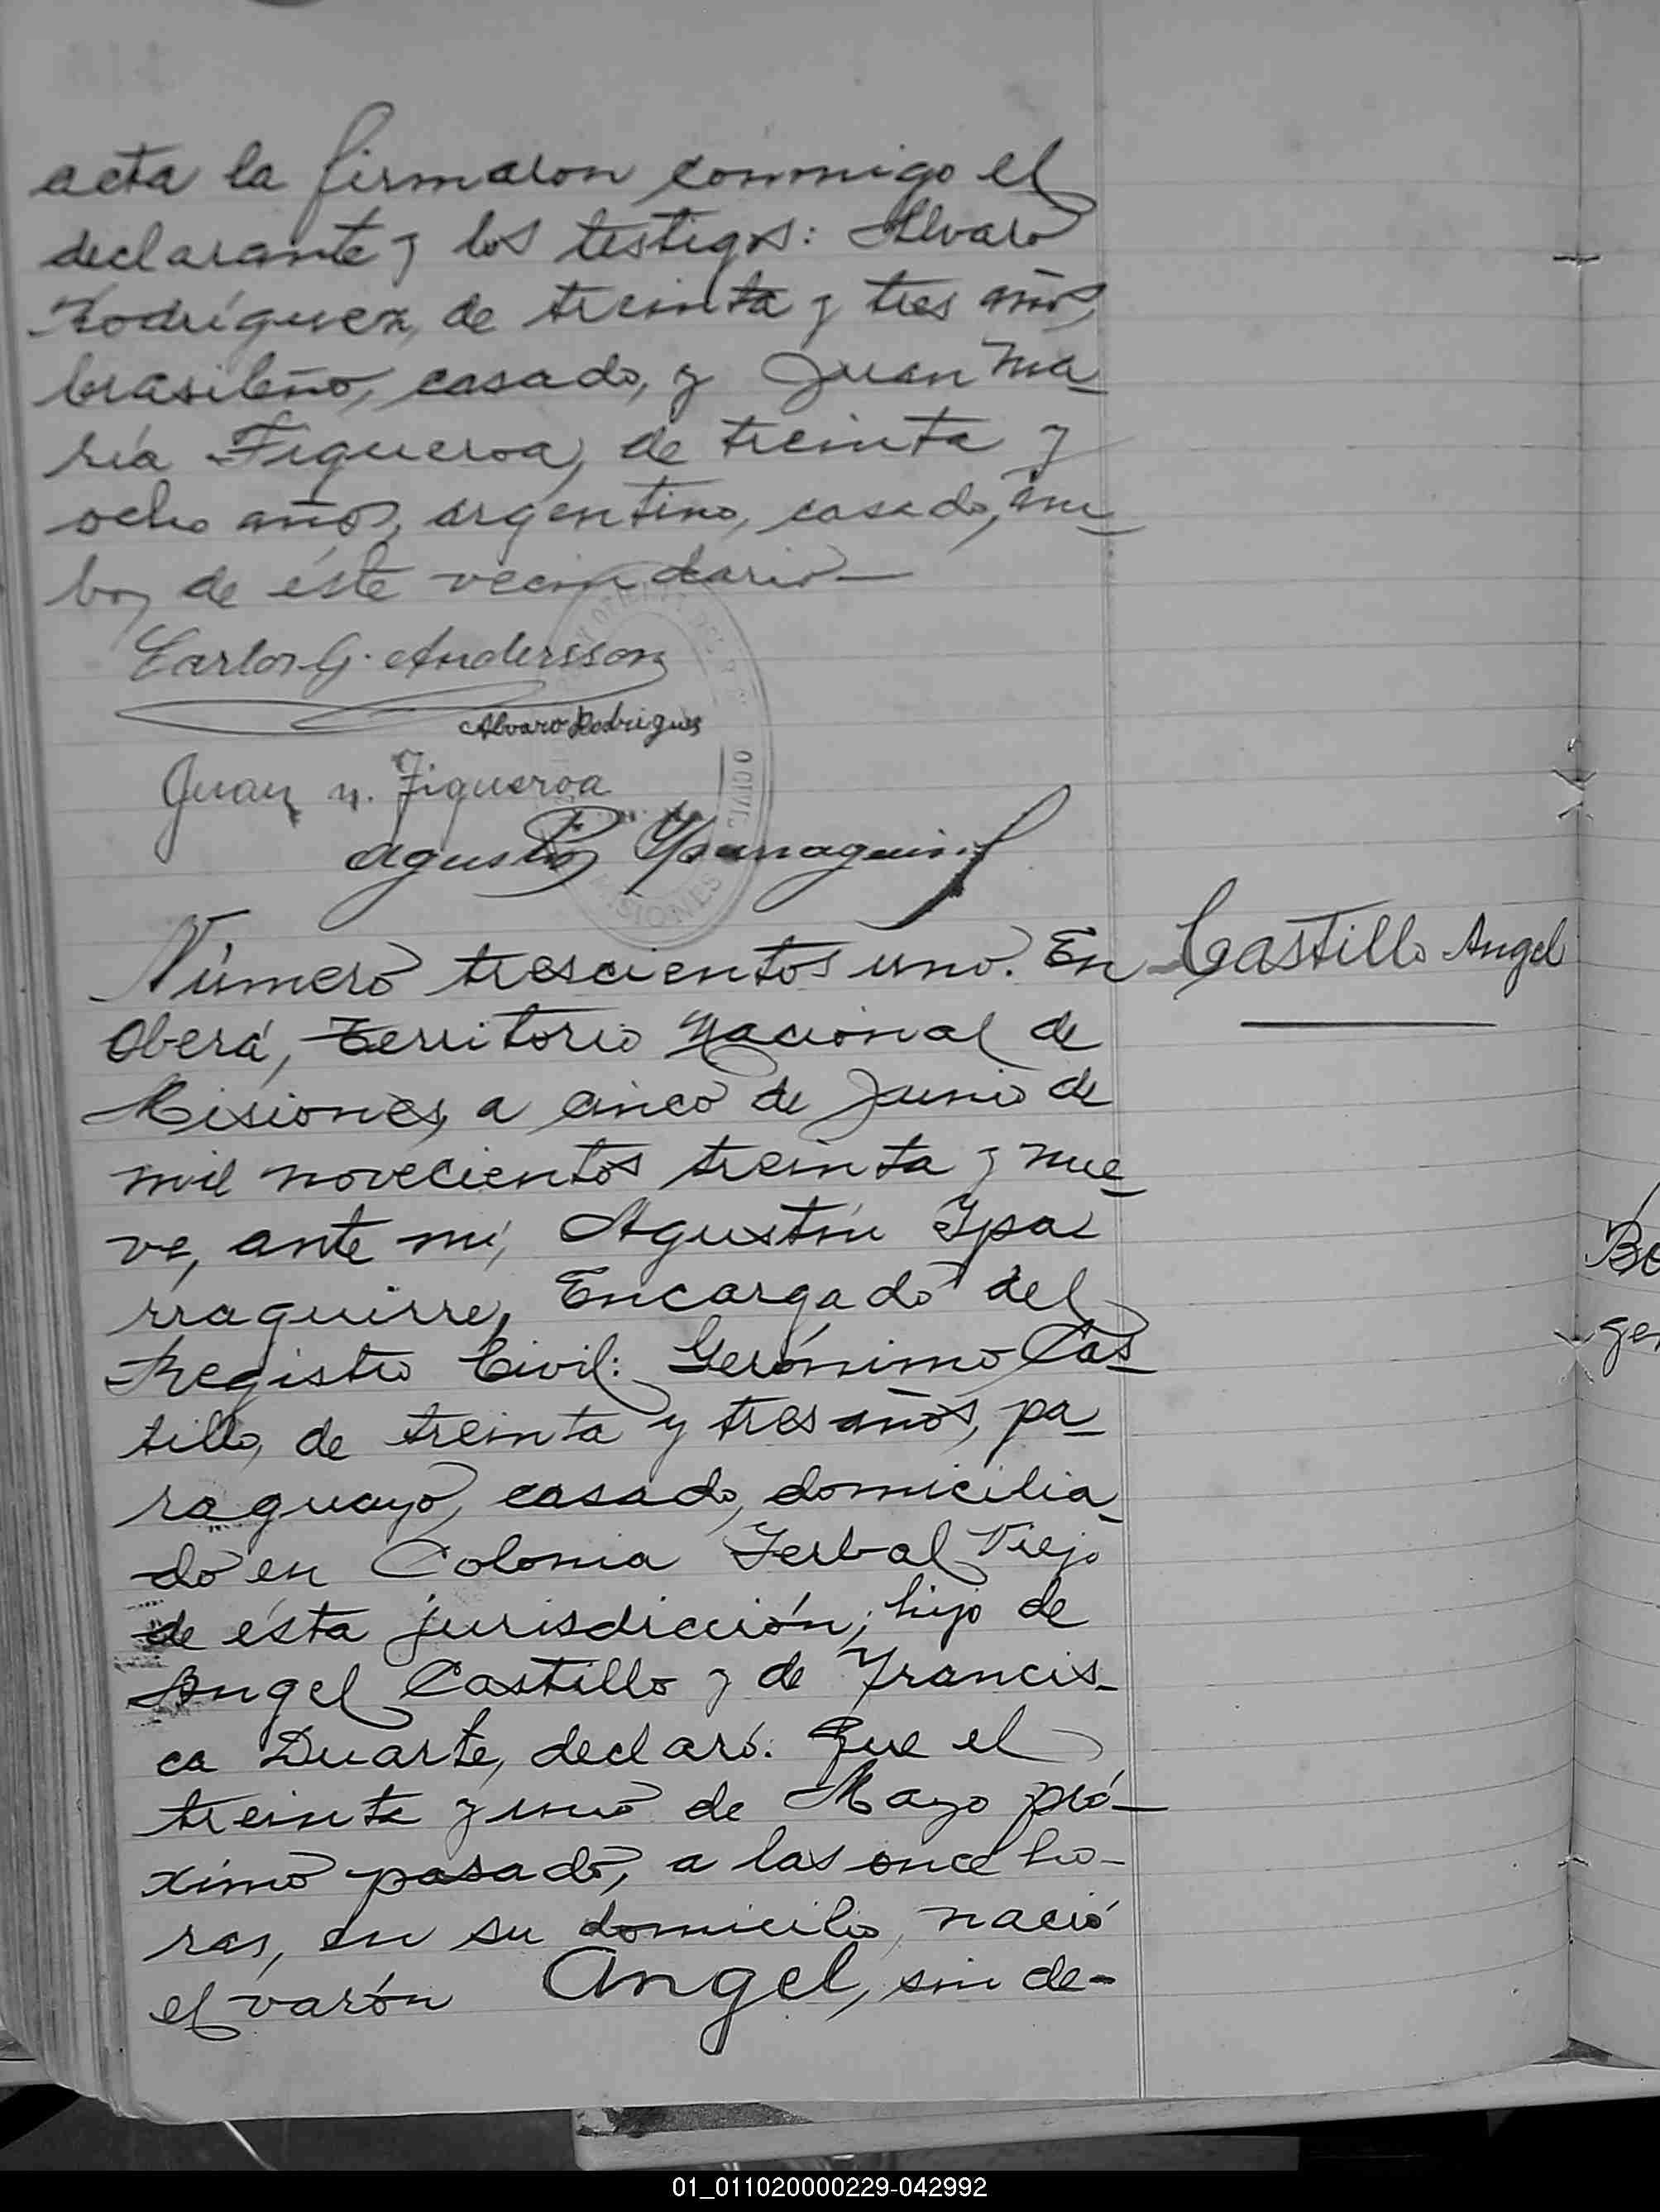 acta la firmaron conmigo el
declarante y los testigos: Alvaro
Rodríguez, de treinta y tres años,
brasileño, casado, y Juan Ma-
ría Figueroa, de treinta y
ocho años, argentino, casado, am-
bos de éste vecindario—
Carlos G. Andersson
Alvaro Rodrigues
Juan M. Figueroa
Agustín Yparraguirre
O CIVIL
MISIONES
Número trescientos uno. En
Castillo Angel
Oberá, Territorio Nacional de
Misiones, a cinco de Junio de
mil novecientos treinta y nue-
ve, ante mí, Agustín Ipa
rraguirre, Encargado del
Registro Civil: Gerónimo Cas-
tillo, de treinta y tres años, pa-
raguayo, casado, domicilia-
do en Colonia Yerbal Viejo
de ésta jurisdicción; hijo de
Angel Castillo y de Francis-
ca Duarte, declaró: Que el
treinta y uno de Mayo pró-
ximo pasado, a las once ho-
ras, en su domicilio, nació
el varón Angel, sin de-
Be
ger
01_011020000229-042992